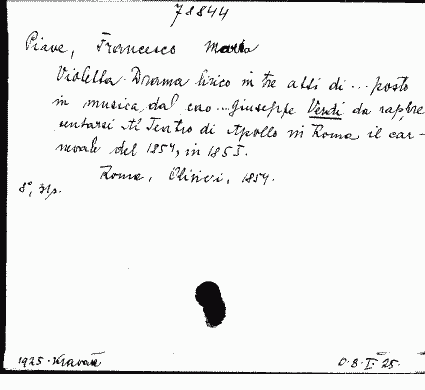 78844
Piave, Francesco Maria
Violetta. Drama lirico in tre atti di ... posto
in musica dal cav ... Giuseppe Verdi da rappre
sentarsi Al Teatro di Apollo in Roma il car-
nevale del 1854, in 1855.
Roma, Olivieri, 1854.
8°, 31p.
1925.
O. B. I. 25.